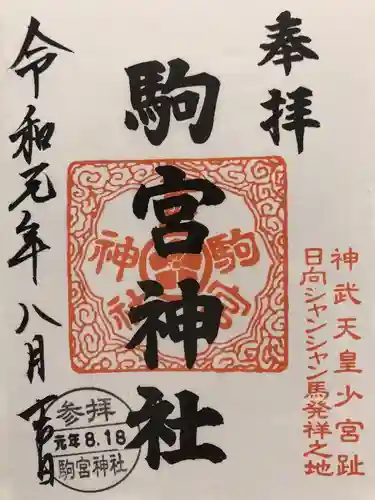 奉拝
駒宮神社
駒宮
神社
神武天皇少宮趾
日向シャンシャン馬発祥之地
令和元年八月 吉日
参拝
元年8.18
駒宮神社